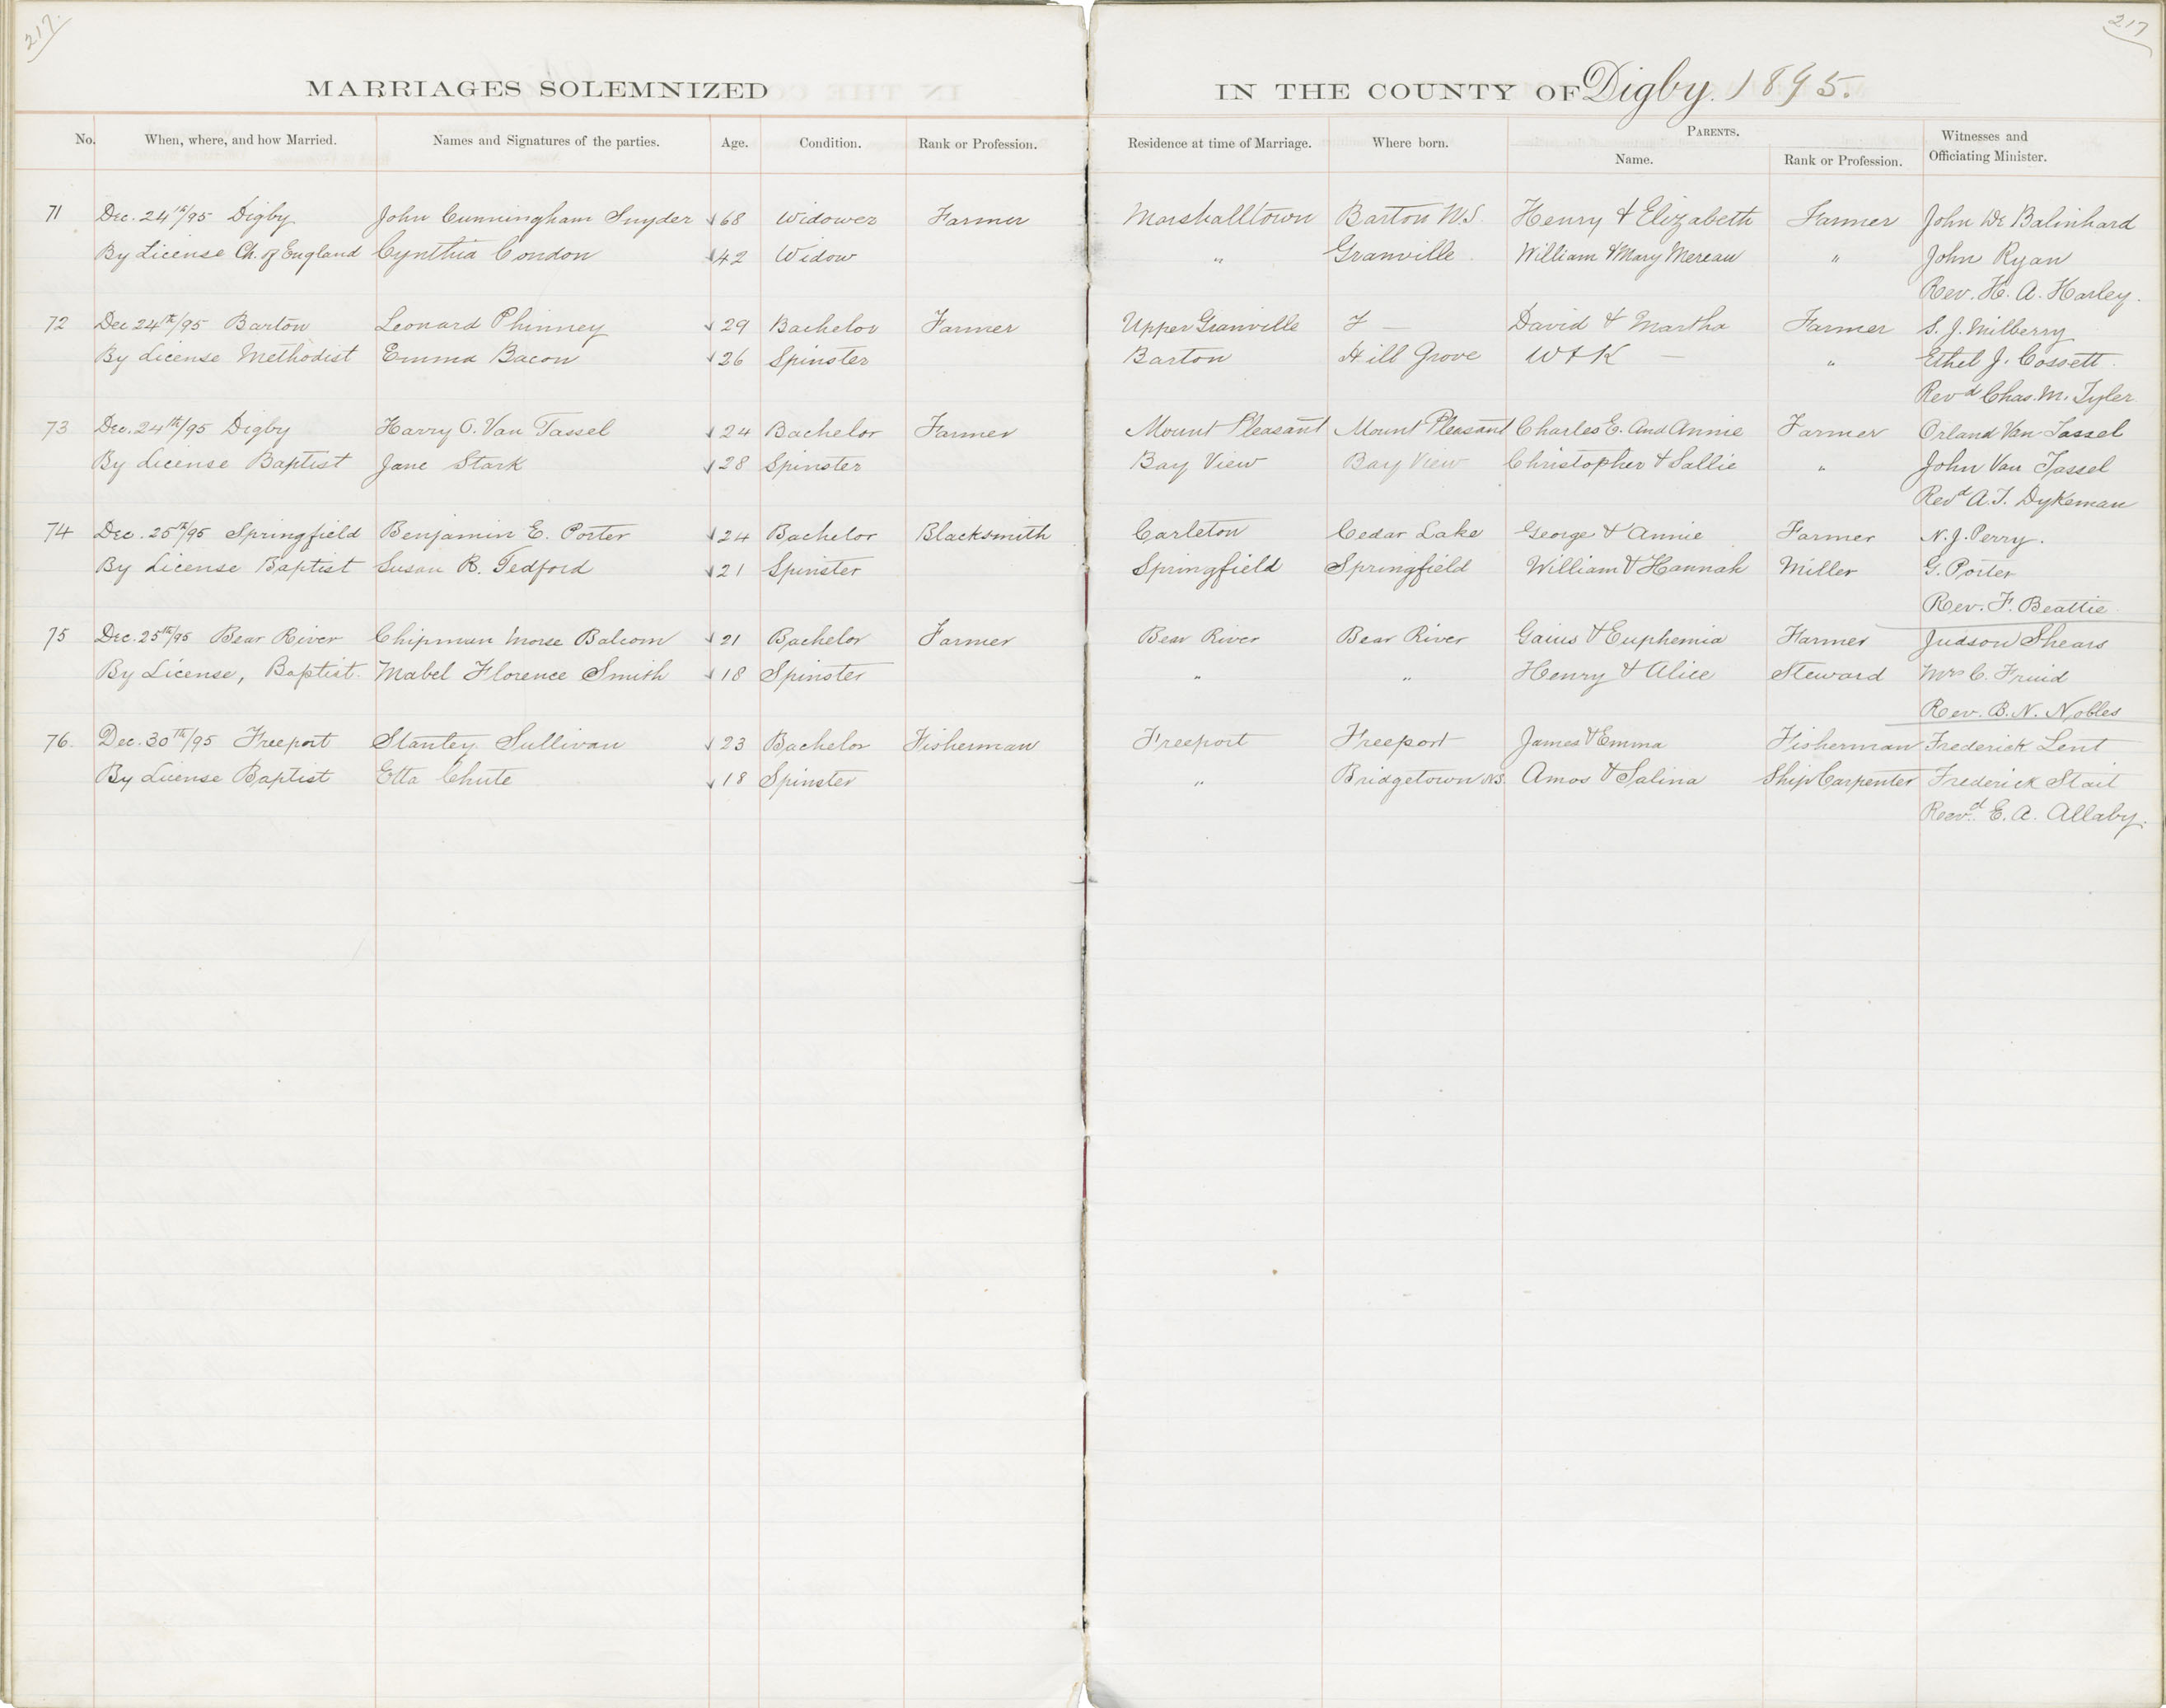 217.
217
MARRIAGES SOLEMNIZED IN THE COUNTY OF Digby. 1895.
No. When, where, and how Married. Names and Signatures of the parties. Age. Condition. Rank or Profession. Residence at time of Marriage. Where born. PARENTS. Name. Rank or Profession. Witnesses and Officiating Minister.
71 Dec. 24th/95 Digby John Cunningham Snyder √68 Widower Farmer Marshalltown Barton N.S. Henry & Elizabeth Farmer John De Balinhard
By License Ch. of England Cynthia Condon √42 Widow " Granville William & Mary Mereau " John Ryan
Rev. H. A. Harley.
72 Dec 24th/95 Barton Leonard Phinney √29 Bachelor Farmer Upper Granville F — David & Martha Farmer S. J. Milberry
By License Methodist Emma Bacon √26 Spinster Barton Hill Grove W & K — " Ethel J. Cossett
Revd Chas. M. Tyler
73 Dec. 24th/95 Digby Harry O. Van Tassel √24 Bachelor Farmer Mount Pleasant Mount Pleasant Charles E. and Annie Farmer Orland Van Tassel
By License Baptist Jane Stark √28 Spinster Bay View Bay View Christopher & Sallie " John Van Tassel
Revd A. T. Dykeman
74 Dec. 25th/95 Springfield Benjamin E. Porter √24 Bachelor Blacksmith Carleton Cedar Lake George & Annie Farmer N. J. Perry.
By License Baptist Susan R. Tedford √21 Spinster Springfield Springfield William & Hannah Miller G. Porter
Rev. F. Beattie
75 Dec. 25th/95 Bear River Chipman Morse Balcom √21 Bachelor Farmer Bear River Bear River Gaius & Euphemia Farmer Judson Shears
By License, Baptist. Mabel Florence Smith √18 Spinster " " Henry & Alice Steward Mrs C. Fruid
Rev. B. N. Nobles
76. Dec. 30th/95 Freeport Stanley Sullivan √23 Bachelor Fisherman Freeport Freeport James & Emma Fisherman Frederick Lent
By License Baptist Etta Chute √18 Spinster " Bridgetown N.S. Amos & Salina Ship Carpenter Frederick Stait
Revd. E. A. Allaby.